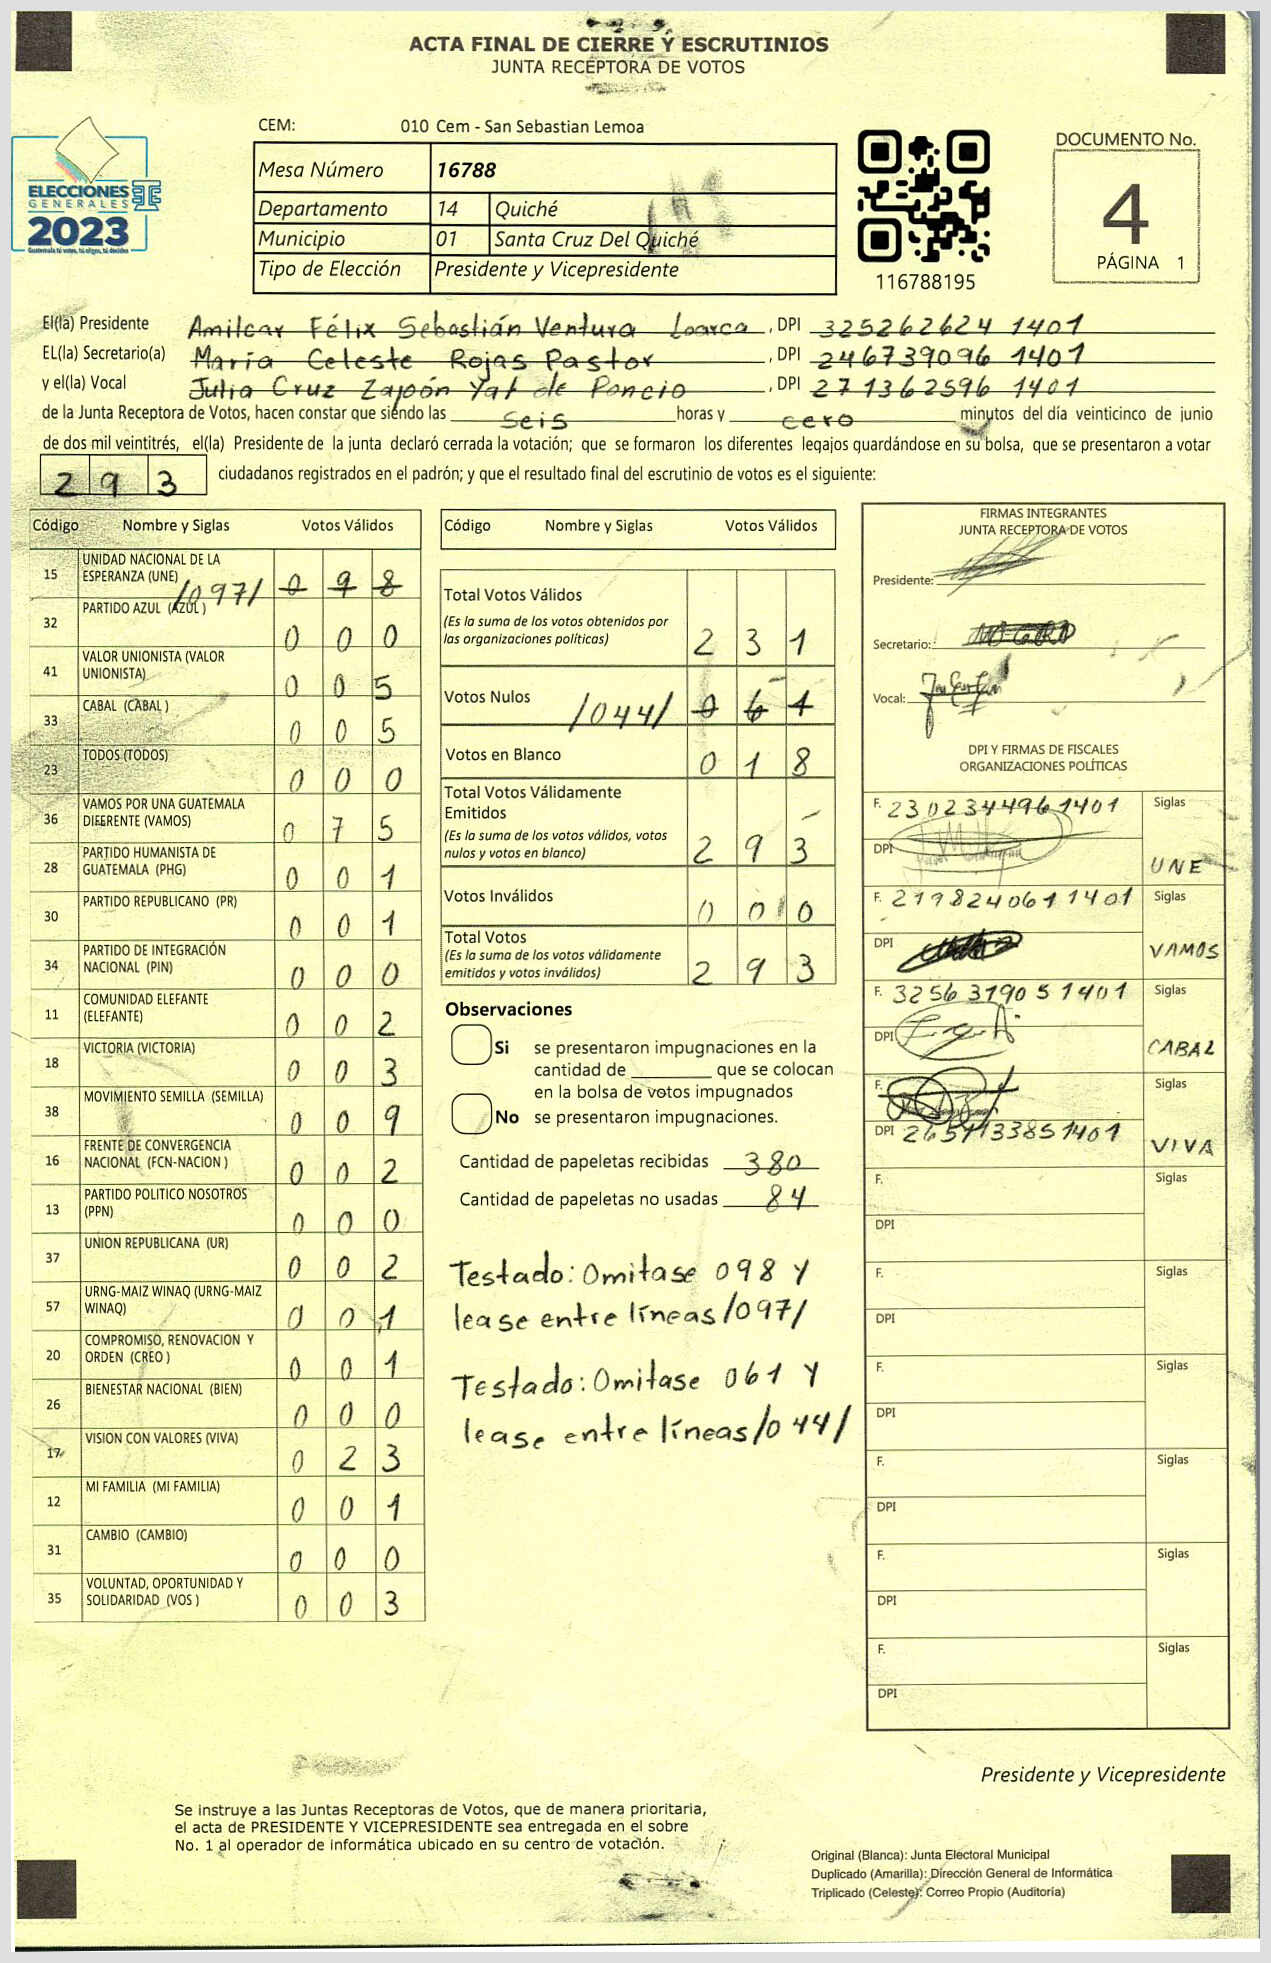 ACTA FINAL DE CIERRE Y ESCRUTINIOS
JUNTA RECEPTORA DE VOTOS
CEM: 010 Cem - San Sebastian Lemoa
ELECCIONES
GENERALES
2023
Guatemala tú votas, tú eliges, tú decides
Mesa Número 16788
Departamento 14 Quiché
Municipio 01 Santa Cruz Del Quiché
Tipo de Elección Presidente y Vicepresidente
116788195
DOCUMENTO No.
4
PÁGINA 1
El(la) Presidente Amilcar Félix Sebastián Ventura Loarca , DPI 325262624 1401
EL(la) Secretario(a) María Celeste Rojas Pastor , DPI 246739096 1401
y el(la) Vocal Julia Cruz Zapón Yat de Poncio , DPI 271362596 1401
de la Junta Receptora de Votos, hacen constar que siendo las seis horas y cero minutos del día veinticinco de junio
de dos mil veintitrés, el(la) Presidente de la junta declaró cerrada la votación; que se formaron los diferentes legajos guardándose en su bolsa, que se presentaron a votar
293 ciudadanos registrados en el padrón; y que el resultado final del escrutinio de votos es el siguiente:
Código Nombre y Siglas Votos Válidos
15 UNIDAD NACIONAL DE LA
ESPERANZA (UNE) /097/ 0 9 8
32 PARTIDO AZUL (AZUL ) 0 0 0
41 VALOR UNIONISTA (VALOR
UNIONISTA) 0 0 5
33 CABAL (CABAL ) 0 0 5
23 TODOS (TODOS) 0 0 0
36 VAMOS POR UNA GUATEMALA
DIFERENTE (VAMOS) 0 7 5
28 PARTIDO HUMANISTA DE
GUATEMALA (PHG) 0 0 1
30 PARTIDO REPUBLICANO (PR) 0 0 1
34 PARTIDO DE INTEGRACIÓN
NACIONAL (PIN) 0 0 0
11 COMUNIDAD ELEFANTE
(ELEFANTE) 0 0 2
18 VICTORIA (VICTORIA) 0 0 3
38 MOVIMIENTO SEMILLA (SEMILLA) 0 0 9
16 FRENTE DE CONVERGENCIA
NACIONAL (FCN-NACION ) 0 0 2
13 PARTIDO POLITICO NOSOTROS
(PPN) 0 0 0
37 UNION REPUBLICANA (UR) 0 0 2
57 URNG-MAIZ WINAQ (URNG-MAIZ
WINAQ) 0 0 1
20 COMPROMISO, RENOVACION Y
ORDEN (CREO ) 0 0 1
26 BIENESTAR NACIONAL (BIEN) 0 0 0
17 VISION CON VALORES (VIVA) 0 2 3
12 MI FAMILIA (MI FAMILIA) 0 0 1
31 CAMBIO (CAMBIO) 0 0 0
35 VOLUNTAD, OPORTUNIDAD Y
SOLIDARIDAD (VOS ) 0 0 3
Código Nombre y Siglas Votos Válidos
Total Votos Válidos
(Es la suma de los votos obtenidos por
las organizaciones políticas) 2 3 1
Votos Nulos /044/ 0 6 1
Votos en Blanco 0 1 8
Total Votos Válidamente
Emitidos
(Es la suma de los votos válidos, votos
nulos y votos en blanco) 2 9 3
Votos Inválidos 0 0 0
Total Votos
(Es la suma de los votos válidamente
emitidos y votos inválidos) 2 9 3
Observaciones
Si se presentaron impugnaciones en la
cantidad de ________ que se colocan
en la bolsa de votos impugnados
No se presentaron impugnaciones.
Cantidad de papeletas recibidas 380
Cantidad de papeletas no usadas 84
Testado: Omitase 098 y
lease entre líneas /097/
Testado: Omitase 061 y
lease entre líneas /044/
FIRMAS INTEGRANTES
JUNTA RECEPTORA DE VOTOS
Presidente:
Secretario:
Vocal:
DPI Y FIRMAS DE FISCALES
ORGANIZACIONES POLÍTICAS
F. 2302344961401 Siglas
DPI UNE
F. 2198240611401 Siglas
DPI VAMOS
F. 3256319051401 Siglas
DPI CABAL
F. Siglas
DPI 2651133851401 VIVA
F. Siglas
DPI
F. Siglas
DPI
F. Siglas
DPI
F. Siglas
DPI
F. Siglas
DPI
F. Siglas
DPI
Presidente y Vicepresidente
Se instruye a las Juntas Receptoras de Votos, que de manera prioritaria,
el acta de PRESIDENTE Y VICEPRESIDENTE sea entregada en el sobre
No. 1 al operador de informática ubicado en su centro de votación.
Original (Blanca): Junta Electoral Municipal
Duplicado (Amarilla): Dirección General de Informática
Triplicado (Celeste): Correo Propio (Auditoría)